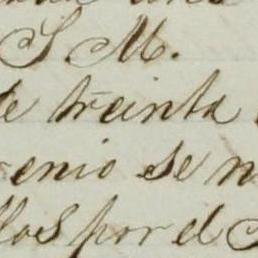 S M.
de treinta
enio se n
llos por el S